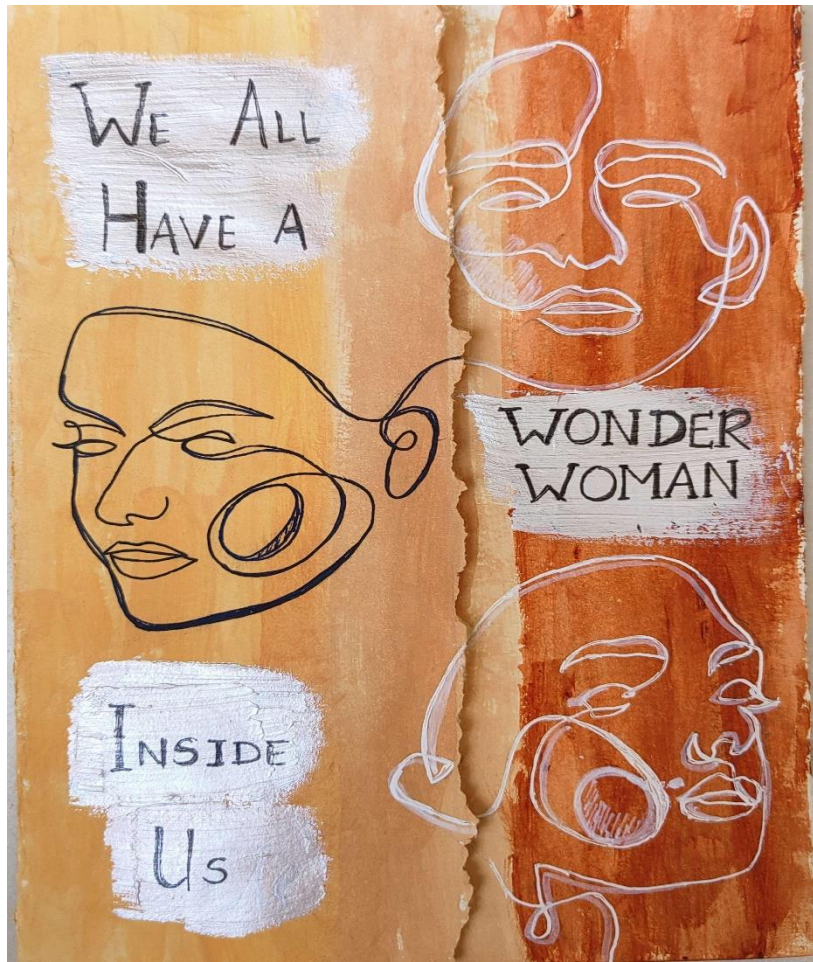 WE ALL
HAVE A
WONDER
WOMAN
INSIDE
US